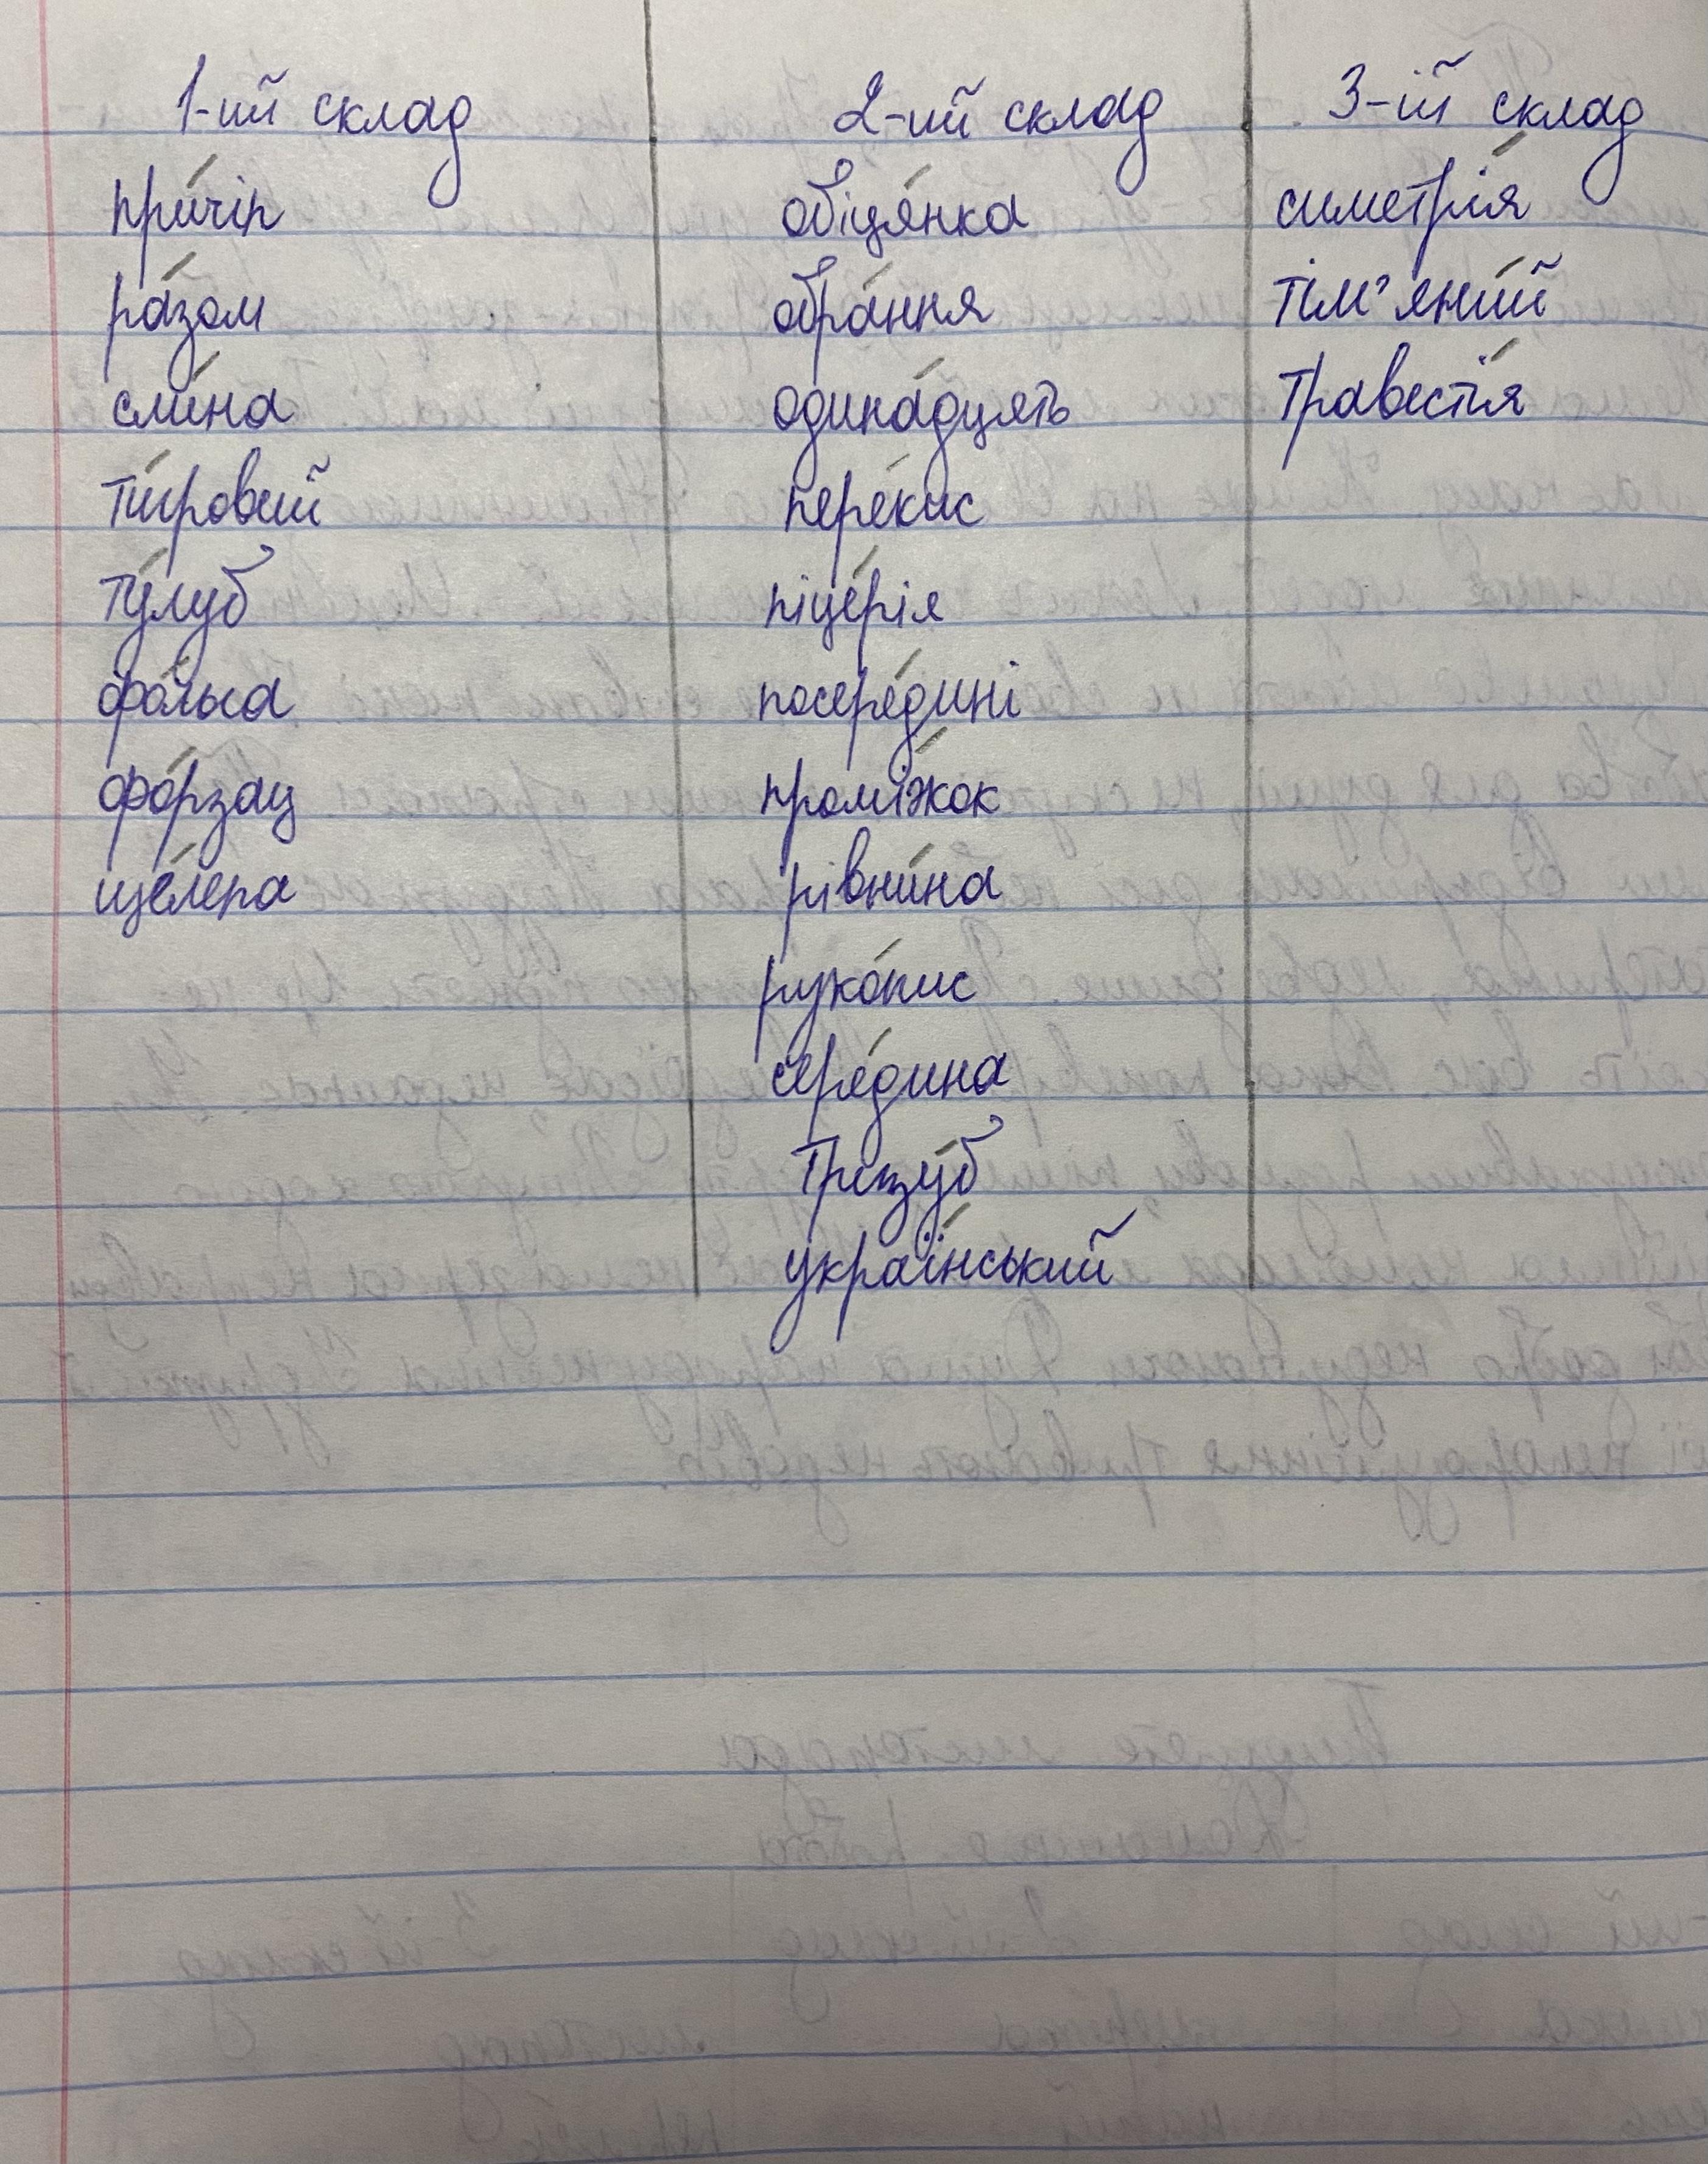 1-ий склад 2-ий склад 3-ій склад
при́чіп обіця́нка симетрі́я
ра́зом обра́ння тім'яни́й
сли́на одина́дцять травесті́я
ти́гровий пере́кис
ту́луб піце́рія
фо́льга посере́дині
фо́рзац промі́жок
ще́лепа рівни́на
руко́пис
сере́дина
тризу́б
украї́нський